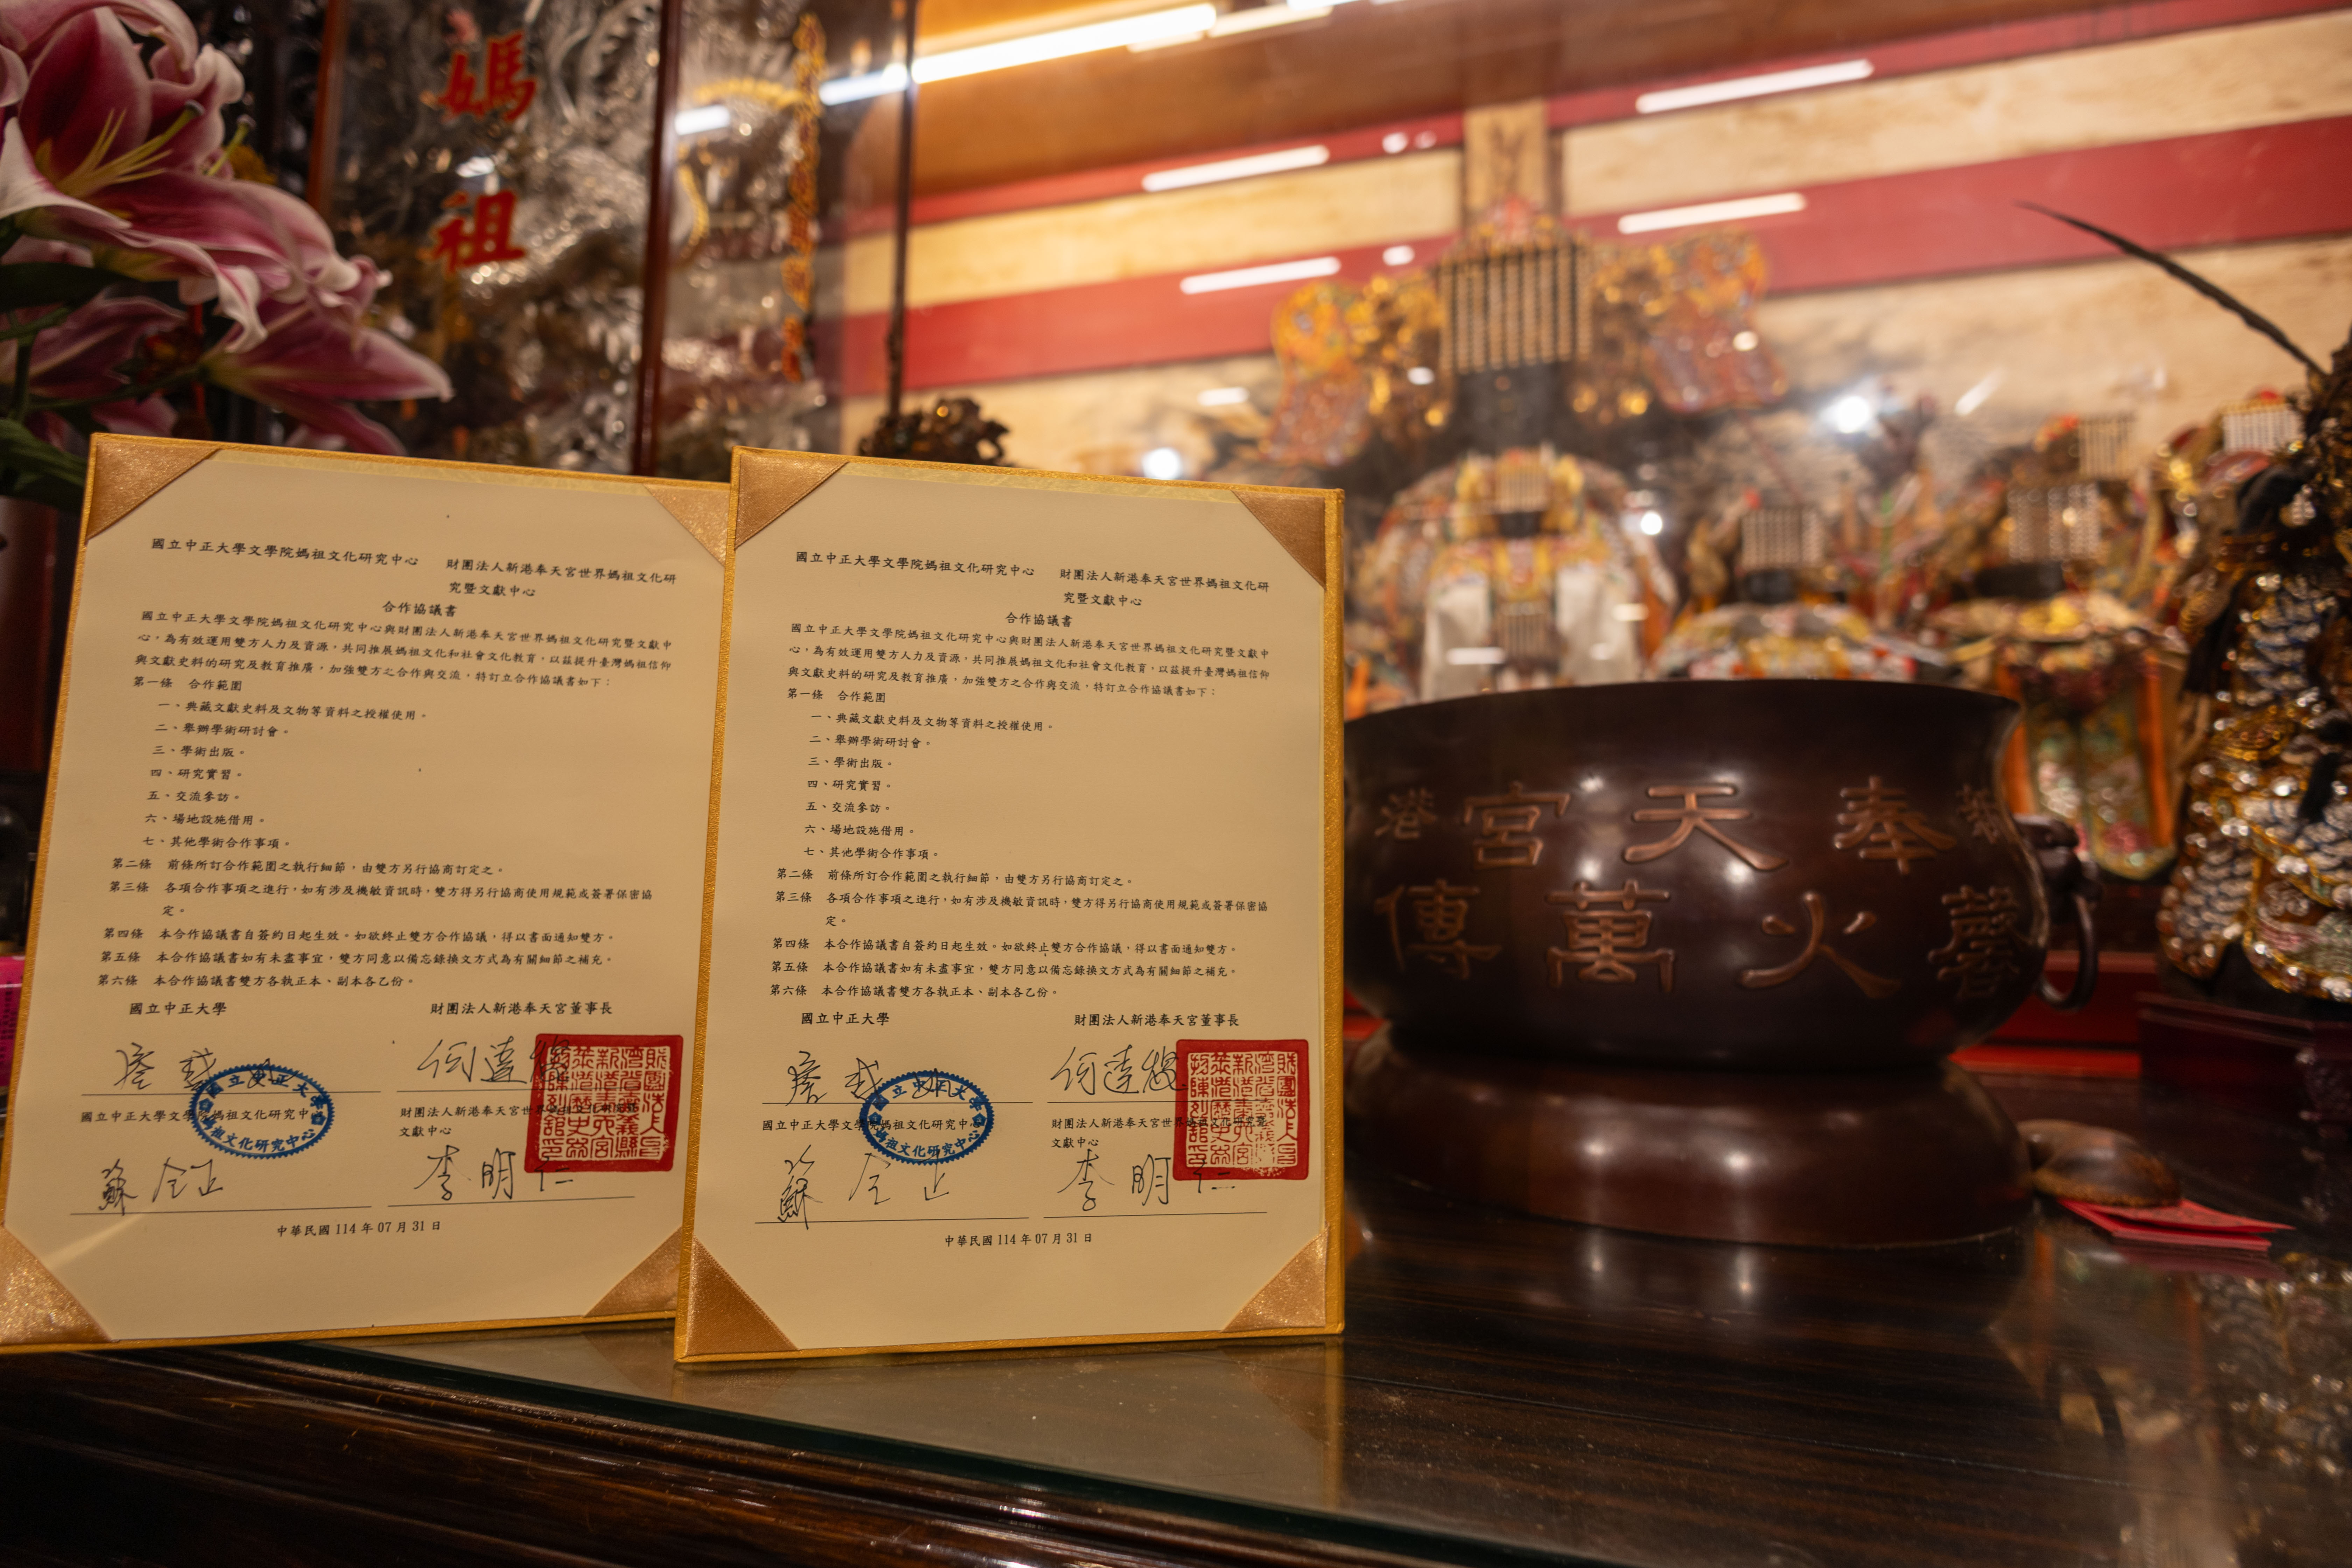 媽祖
國立中正大學文學院媽祖文化研究中心 財團法人新港奉天宮世界媽祖文化研
究暨文獻中心
合作協議書
國立中正大學文學院媽祖文化研究中心與財團法人新港奉天宮世界媽祖文化研究暨文獻中
心，為有效運用雙方人力及資源，共同推展媽祖文化和社會文化教育，以茲提升臺灣媽祖信仰
與文獻史料的研究及教育推廣，加強雙方之合作與交流，特訂立合作協議書如下：
第一條 合作範圍
一、典藏文獻史料及文物等資料之授權使用。
二、舉辦學術研討會。
三、學術出版。
四、研究實習。
五、交流參訪。
六、場地設施借用。
七、其他學術合作事項。
第二條 前條所訂合作範圍之執行細節，由雙方另行協商訂定之。
第三條 各項合作事項之進行，如有涉及機敏資訊時，雙方得另行協商使用規範或簽署保密協
定。
第四條 本合作協議書自簽約日起生效。如欲終止雙方合作協議，得以書面通知雙方。
第五條 本合作協議書如有未盡事宜，雙方同意以備忘錄換文方式為有關細節之補充。
第六條 本合作協議書雙方各執正本、副本各乙份。
國立中正大學 財團法人新港奉天宮董事長
國立中正大學
媽祖文化研究中心
國立中正大學文學院媽祖文化研究中心 財團法人新港奉天宮世界媽祖文化研究暨
文獻中心
李明仁
中華民國 114 年 07 月 31 日
國立中正大學文學院媽祖文化研究中心 財團法人新港奉天宮世界媽祖文化研
究暨文獻中心
合作協議書
國立中正大學文學院媽祖文化研究中心與財團法人新港奉天宮世界媽祖文化研究暨文獻中
心，為有效運用雙方人力及資源，共同推展媽祖文化和社會文化教育，以茲提升臺灣媽祖信仰
與文獻史料的研究及教育推廣，加強雙方之合作與交流，特訂立合作協議書如下：
第一條 合作範圍
一、典藏文獻史料及文物等資料之授權使用。
二、舉辦學術研討會。
三、學術出版。
四、研究實習。
五、交流參訪。
六、場地設施借用。
七、其他學術合作事項。
第二條 前條所訂合作範圍之執行細節，由雙方另行協商訂定之。
第三條 各項合作事項之進行，如有涉及機敏資訊時，雙方得另行協商使用規範或簽署保密協
定。
第四條 本合作協議書自簽約日起生效。如欲終止雙方合作協議，得以書面通知雙方。
第五條 本合作協議書如有未盡事宜，雙方同意以備忘錄換文方式為有關細節之補充。
第六條 本合作協議書雙方各執正本、副本各乙份。
國立中正大學 財團法人新港奉天宮董事長
國立中正大學
媽祖文化研究中心
國立中正大學文學院媽祖文化研究中心 財團法人新港奉天宮世界媽祖文化研究暨
文獻中心
李明仁
中華民國 114 年 07 月 31 日
港宮天奉新
傳萬火